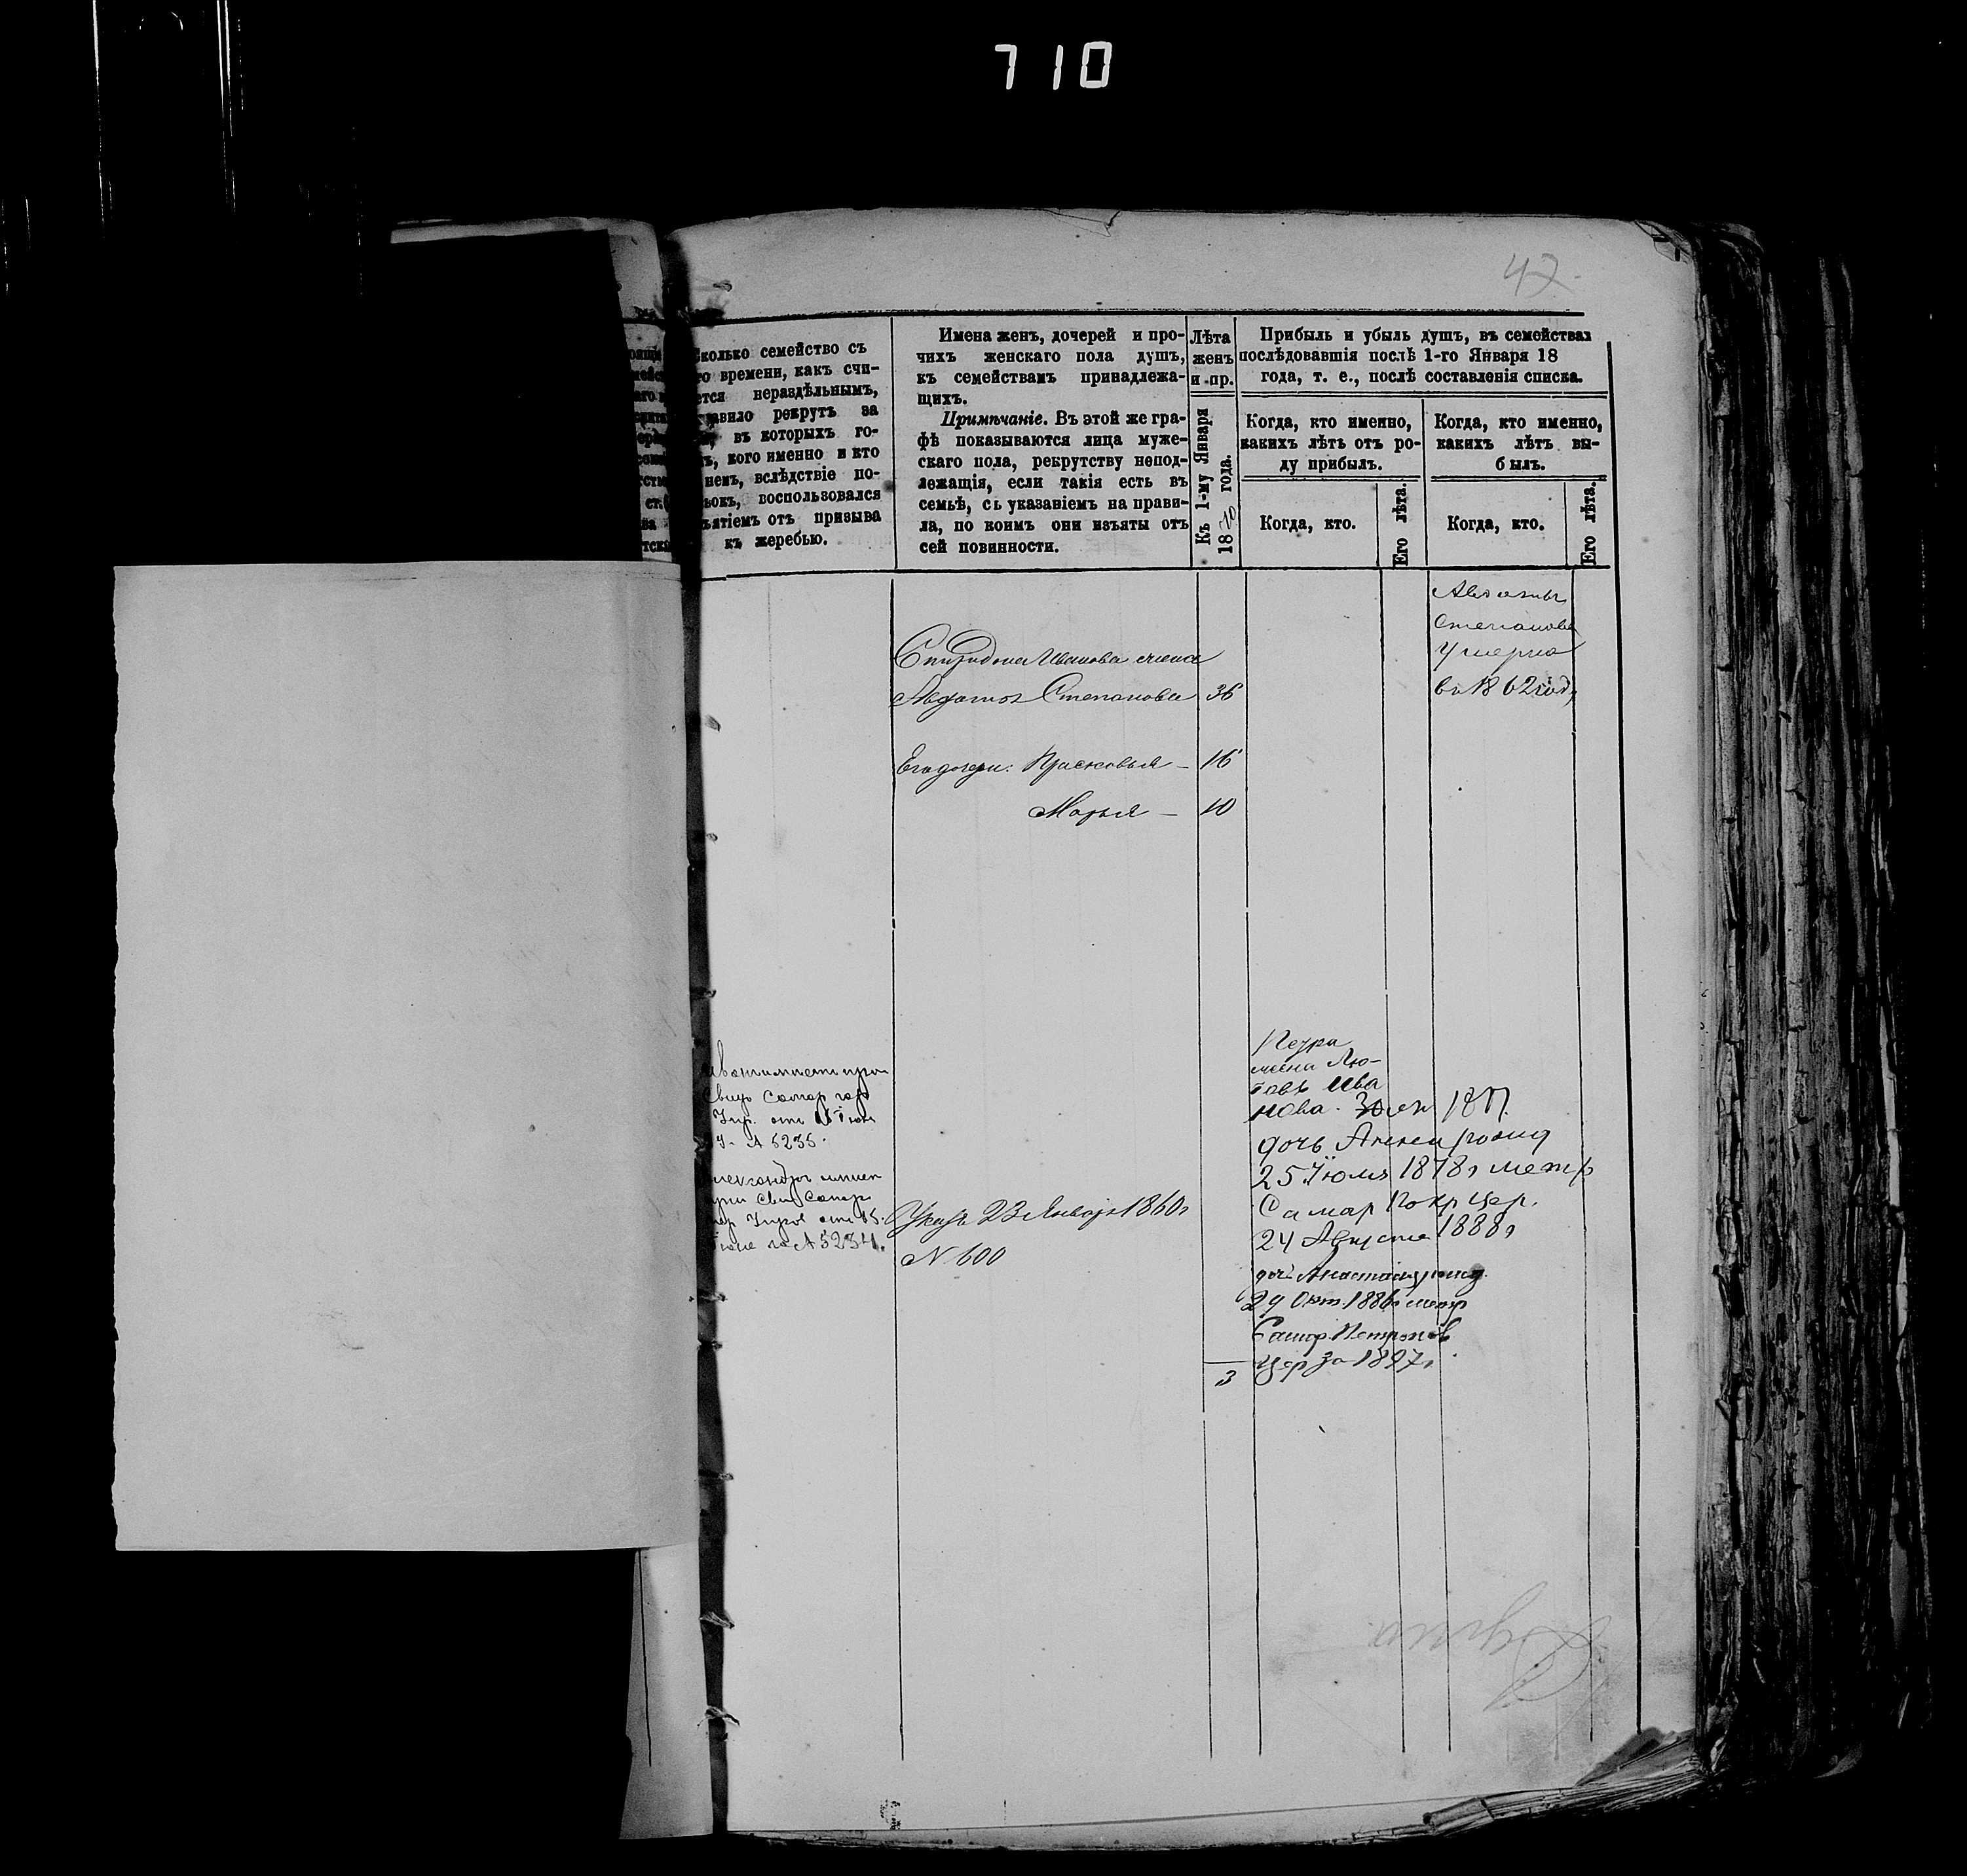 710
47
колько семейство съ
го времени, какъ счи-
ется нераздѣльнымъ,
авило рекрутъ за
въ которыхъ го-
ъ, кого именно и кто
немъ, вслѣдствіе по-
ьокъ, воспользовался
ъятіемъ отъ призыва
къ жеребью.
Имена женъ, дочерей и про-
чихъ женскаго пола душъ,
къ семействамъ принадлежа-
щихъ.
Примѣчаніе. Въ этой же гра-
фѣ показываются лица муже-
скаго пола, рекрутству непод-
лежащія, если такія есть въ
семьѣ, съ указаніемъ на прави-
ла, по коимъ они изъяты отъ
сей повинности.
Лѣта
женъ
и пр.
Къ 1-му Января
1870 года.
Прибыль и убыль душъ, въ семействах
послѣдовавшія послѣ 1-го Января 18
года, т. е., послѣ составленія списка.
Когда, кто именно,
какихъ лѣтъ отъ ро-
ду прибылъ.
Когда, кто.
Его лѣта.
Когда, кто именно,
какихъ лѣтъ вы-
былъ.
Когда, кто.
Его лѣта.
Спиридона Иванова жена
Авдотья Степанова 36
Его дочери: Прасковья — 16
Марья — 10
Авдотья
Степанова
Умерла
въ 1862 году
Свид Самар гор
Упр. отъ
№ 5235.
Самар
Упров отъ 15
за № 5234.
Указъ 23 Января 1860 г
№ 600
3
Петра
жена Лю-
бовь Ива
нова. 30 лет
дочь Анна ролид
25 Іюля 1878 г метр
Самар Покр Цер.
24 Августа 1888 г
дочь Анастасія
29 Окт. 1886 г метр
Самар. Петропав
Цер за 1897 г